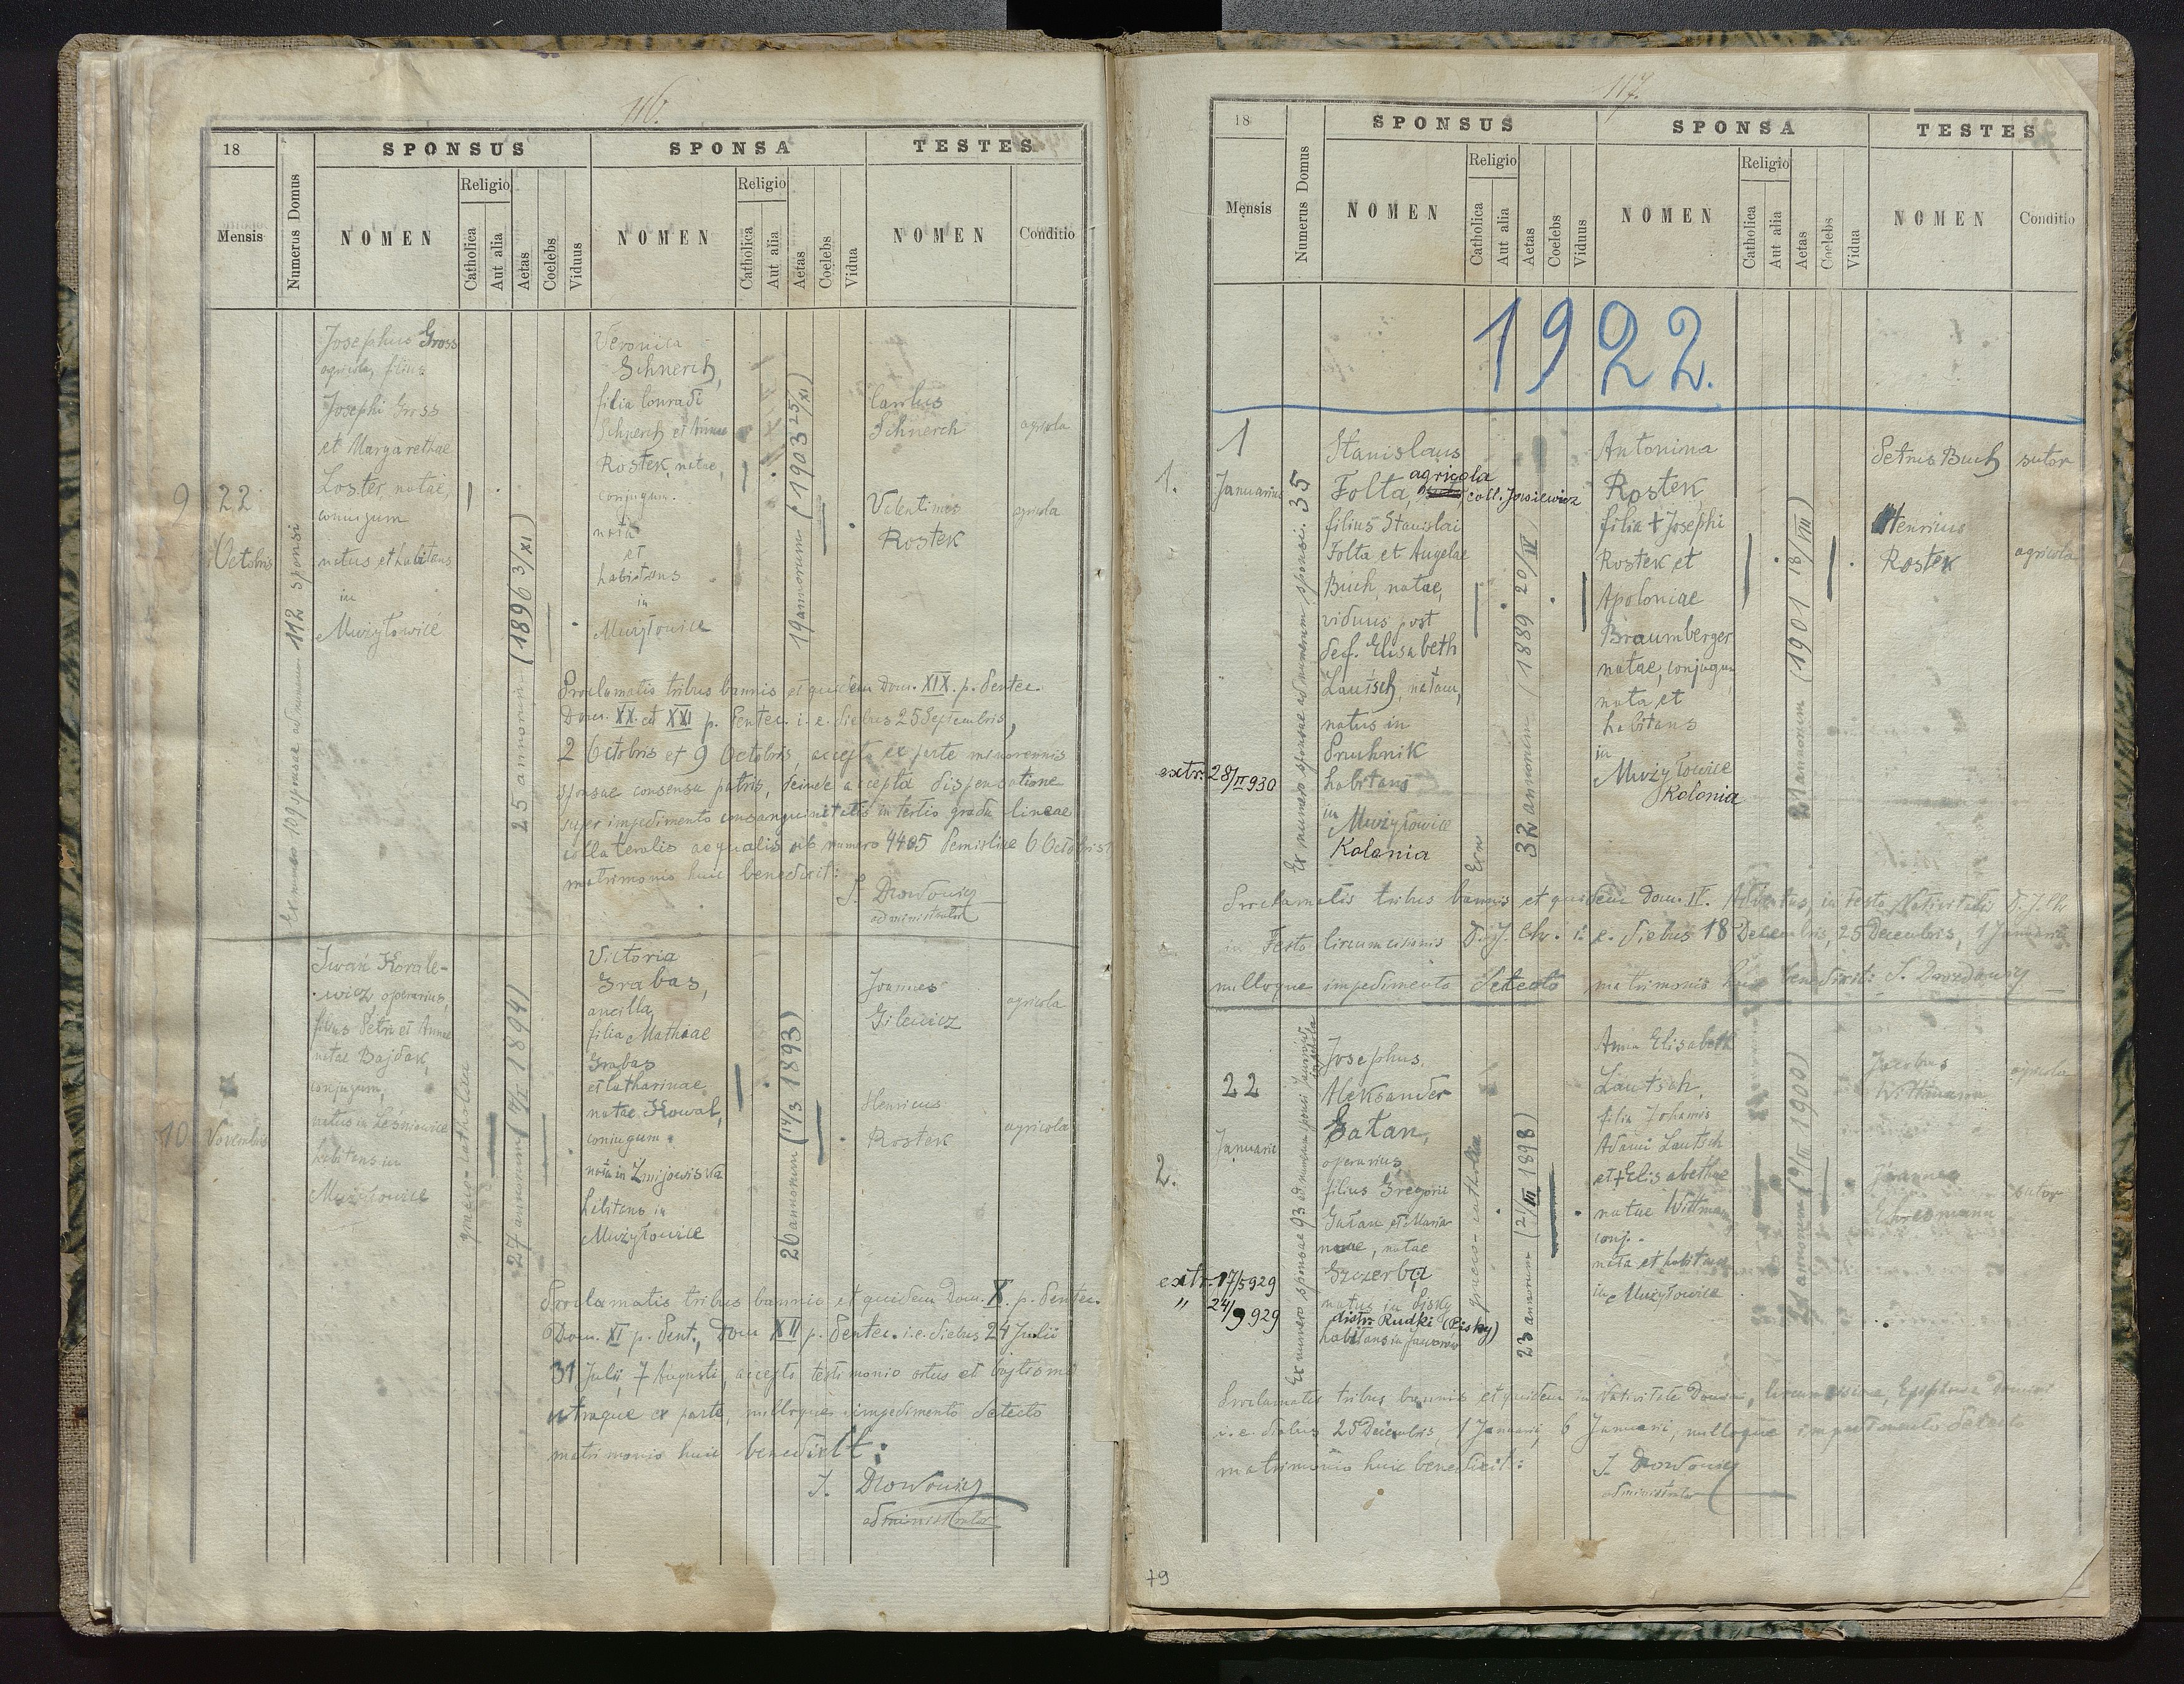 116.
18
SPONSUS
SPONSA
TESTES
Mensis
Numerus Domus
NOMEN
Religio
Catholica
Aut alia
Aetas
Coelebs
Viduus
NOMEN
Religio
Catholica
Aut alia
Aetas
Coelebs
Vidua
NOMEN
Conditio
9
22
Octobris
Ex numero 109 sponsae ad numerum 112 sponsi
Josephus Gross
agricola, filius
Josephi Gross
et Margarethae
Loster, natae,
conjugum
natus et habitans
in
Mużyłowice
25 annorum (1896 3/XI)
Veronica
Schnerch,
filia Conradi
Schnerch et Annae
Rostek, natae,
conjugum.
nata
et
habitans
in
Mużyłowice
19 annorum (1903 25/XI)
Schnerch
agricola
Valentinus
Rostek
agricola
Proclamatis tribus bannis et quidem Dom. XIX. p. Pentec.
Dom. XX. et XXI p. Pentec. i. e. diebus 25 Septembris,
2 Octobris et 9 Octobris, accepto ex parte minorennis
sponsae consensu patris, deinde accepta dispensatione
super impedimento consanguinitatis in tertio gradu lineae
collateralis aequalis sub numero 4405 Premisliae 6 Octobris
matrimonio huic benedixit:
J. Drozdowicz
administrator
10
Novembris
Iwan Korale-
wicz operarius,
filius Petri et Annae
natae Bajdak,
conjugum,
natus in Leśniowice
habitans in
Mużyłowice
graeco-catholica
27 annorum 1894)
Victoria
Grabas,
ancilla,
filia Mathiae
Grabas
et Catharinae
natae Kowal,
conjugum.
nata in Żmijowiska
habitans in
Mużyłowice
26 annorum (14/3 1893)
Joannes
Gilewicz
agricola
Henricus
Rostek
agricola
Proclamatis tribus bannis et quidem Dom. X. p. Pentec.
Dom. XI p. Pent., Dom XII p. Pentec. i.e. diebus 24 Julii
31 Julii, 7 Augusti, accepto testimonio ortus et baptismi
utraque ex parte, nulloque impedimento detecto
matrimonio huic benedixit:
J. Drozdowicz
administrator
117.
18
SPONSUS
SPONSA
TESTES
Mensis
Numerus Domus
NOMEN
Religio
Catholica
Aut alia
Aetas
Coelebs
Viduus
NOMEN
Religio
Catholica
Aut alia
Aetas
Coelebs
Vidua
NOMEN
Conditio
1922.
1.
1
Januarius
extr. 28/II 930
Ex numero sponsae ad numerum sponsi. 35
Stanislaus
Folta, agricola
coll. Jowiewicz
filius Stanislai
Folta et Angelae
Buch, natae,
viduus post
def. Elisabeth
Lautsch, natam,
natus in
Pruchnik
habitans
in Mużyłowice
Kolonia
32 annorum (1889 20/IV
Antonina
Rostek
filia + Josephi
Rostek et
Apoloniae
Braumberger
natae, conjugum
nata et
habitans
in
Mużyłowice
Kolonia
21 annorum (1901 18/VIII)
Petrus Buch
sutor
Henricus
Rostek
agricola
Proclamatis tribus bannis et quidem Dom. IV. Adventus, in Festo Nativitatis D. J. Chr
in Festo Circumcisionis D. J. Chr. i. e. diebus 18 Decembris, 25 Decembris, 1 Januarii
nulloque impedimento detecto matrimonio huic benedixit: J. Drozdowicz
2.
22
Januarii
extr. 17/5 929
" 24/9 929
Ex numero sponsae 93 ad numerum sponsi
Josephus
Aleksander
Gatan,
operarius
filius Gregorii
Gatan et Maria-
nnae, natae
Szczerba
natus in Pisky
distr. Rudki (Pisky)
habitans in Jaworów
graeco-catholica
23 annorum (21/III 1898)
Anna Elisabeth
Lautsch,
filia Johannis
Adami Lautsch
et + Elisabethae
natae Wittmann
conj.
nata et habitans
in Mużyłowice
21 annorum 1900)
Jacobus
Wittmann
agricola
Joannes
Ehresmann
sutor
Proclamatis tribus bannis et quidem in Nativitate Domini, Circumcisione, Epiphania Domini
i. e. diebus 25 Decembris, 1 Januarii, 6 Januarii, nulloque impedimento detecto
matrimonio huic benedixit:
J. Drozdowicz
administrator
79